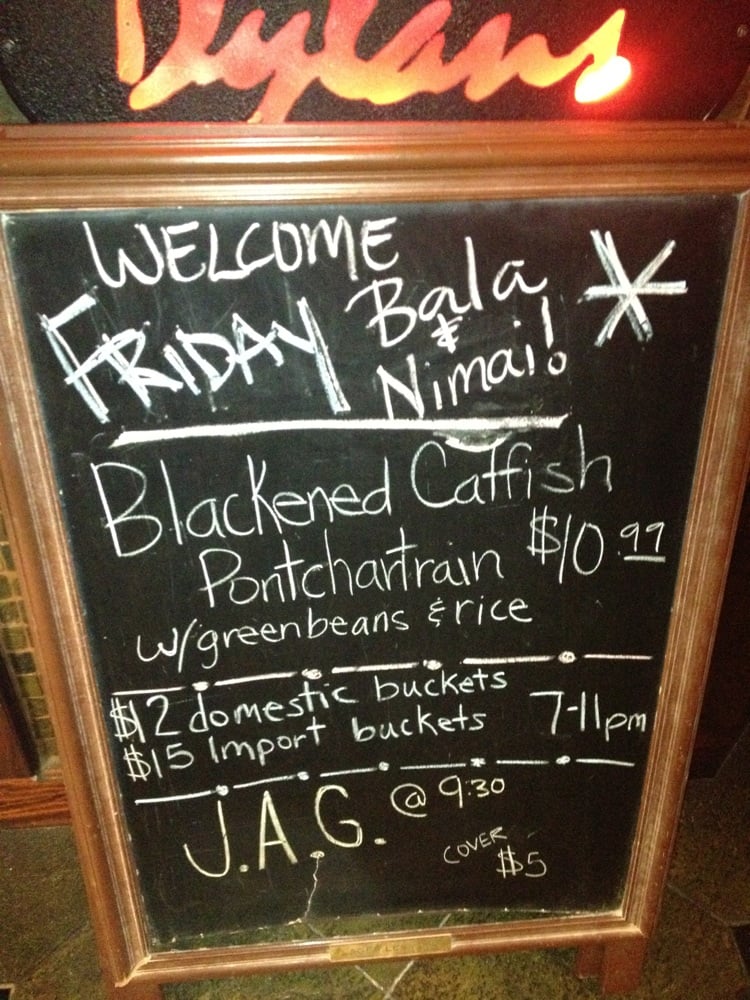 Dylans
WELCOME
FRIDAY Bala
& Nimai!
Blackened Catfish
Pontchartrain $10.99
w/greenbeans & rice
$12 domestic buckets
$15 Import buckets 7-11pm
J.A.G. @ 9:30
COVER
$5